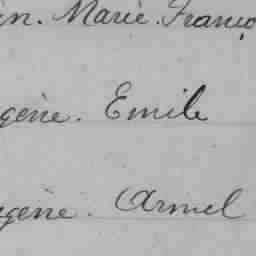 in. Marie. Franço
gène. Emile
gène. Armel